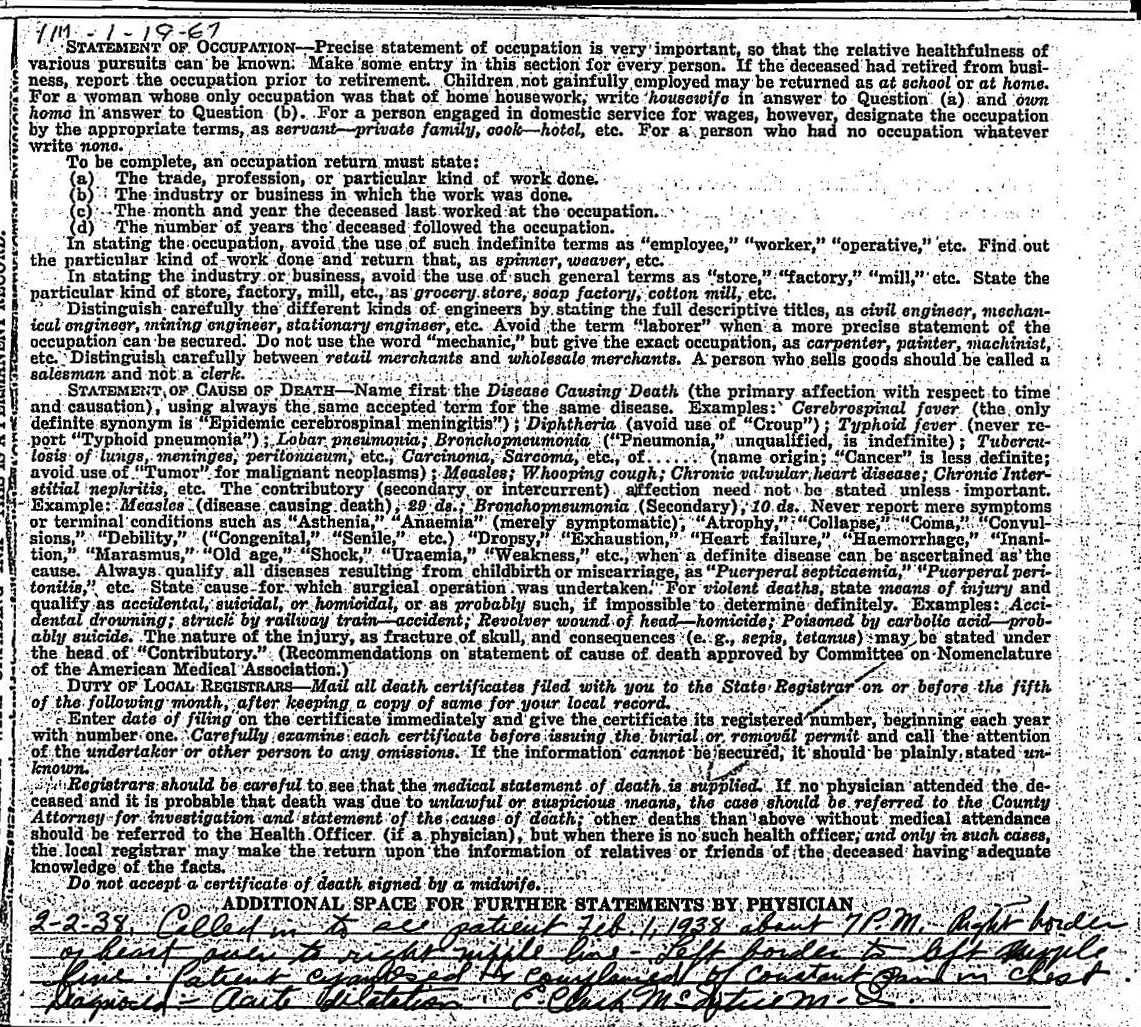 1M - 1-19-67
STATEMENT OF OCCUPATION—Precise statement of occupation is very important, so that the relative healthfulness of
various pursuits can be known. Make some entry in this section for every person. If the deceased had retired from busi-
ness, report the occupation prior to retirement. Children not gainfully employed may be returned as at school or at home.
For a woman whose only occupation was that of home housework, write housewife in answer to Question (a) and own
home in answer to Question (b). For a person engaged in domestic service for wages, however, designate the occupation
by the appropriate terms, as servant—private family, cook—hotel, etc. For a person who had no occupation whatever
write none.
To be complete, an occupation return must state:
(a) The trade, profession, or particular kind of work done.
(b) The industry or business in which the work was done.
(c) The month and year the deceased last worked at the occupation.
(d) The number of years the deceased followed the occupation.
In stating the occupation, avoid the use of such indefinite terms as "employee," "worker," "operative," etc. Find out
the particular kind of work done and return that, as spinner, weaver, etc.
In stating the industry or business, avoid the use of such general terms as "store," "factory," "mill," etc. State the
particular kind of store, factory, mill, etc., as grocery store, soap factory, cotton mill, etc.
Distinguish carefully the different kinds of engineers by stating the full descriptive titles, as civil engineer, mechan-
ical engineer, mining engineer, stationary engineer, etc. Avoid the term "laborer" when a more precise statement of the
occupation can be secured. Do not use the word "mechanic," but give the exact occupation, as carpenter, painter, machinist,
etc. Distinguish carefully between retail merchants and wholesale merchants. A person who sells goods should be called a
salesman and not a clerk.
STATEMENT OF CAUSE OF DEATH—Name first the Disease Causing Death (the primary affection with respect to time
and causation), using always the same accepted term for the same disease. Examples: Cerebrospinal fever (the only
definite synonym is "Epidemic cerebrospinal meningitis"); Diphtheria (avoid use of "Croup"); Typhoid fever (never re-
port "Typhoid pneumonia"); Lobar pneumonia; Bronchopneumonia ("Pneumonia," unqualified, is indefinite); Tubercu-
losis of lungs, meninges, peritonaeum, etc., Carcinoma, Sarcoma, etc., of...... (name origin; "Cancer" is less definite;
avoid use of "Tumor" for malignant neoplasms); Measles; Whooping cough; Chronic valvular heart disease; Chronic Inter-
stitial nephritis, etc. The contributory (secondary or intercurrent) affection need not be stated unless important.
Example: Measles (disease causing death), 29 ds.; Bronchopneumonia (Secondary), 10 ds. Never report mere symptoms
or terminal conditions such as "Asthenia," "Anaemia" (merely symptomatic), "Atrophy," "Collapse," "Coma," "Convul-
sions," "Debility," ("Congenital," "Senile," etc.) "Dropsy," "Exhaustion," "Heart failure," "Haemorrhage," "Inani-
tion," "Marasmus," "Old age," "Shock," "Uraemia," "Weakness," etc., when a definite disease can be ascertained as the
cause. Always qualify all diseases resulting from childbirth or miscarriage, as "Puerperal septicaemia," "Puerperal peri-
tonitis," etc. State cause for which surgical operation was undertaken. For violent deaths, state means of injury and
qualify as accidental, suicidal, or homicidal, or as probably such, if impossible to determine definitely. Examples: Acci-
dental drowning; struck by railway train—accident; Revolver wound of head—homicide; Poisoned by carbolic acid—prob-
ably suicide. The nature of the injury, as fracture of skull, and consequences (e. g., sepis, tetanus) may be stated under
the head of "Contributory." (Recommendations on statement of cause of death approved by Committee on Nomenclature
of the American Medical Association.)
DUTY OF LOCAL REGISTRARS—Mail all death certificates filed with you to the State Registrar on or before the fifth
of the following month, after keeping a copy of same for your local record.
Enter date of filing on the certificate immediately and give the certificate its registered number, beginning each year
with number one. Carefully examine each certificate before issuing the burial or removal permit and call the attention
of the undertaker or other person to any omissions. If the information cannot be secured, it should be plainly stated un-
known.
Registrars should be careful to see that the medical statement of death is supplied. If no physician attended the de-
ceased and it is probable that death was due to unlawful or suspicious means, the case should be referred to the County
Attorney for investigation and statement of the cause of death; other deaths than above without medical attendance
should be referred to the Health Officer (if a physician), but when there is no such health officer, and only in such cases,
the local registrar may make the return upon the information of relatives or friends of the deceased having adequate
knowledge of the facts.
Do not accept a certificate of death signed by a midwife.
ADDITIONAL SPACE FOR FURTHER STATEMENTS BY PHYSICIAN
2-2-38. Called in to see patient Feb. 1, 1938 about 7 P.M. Right border
of heart over to right nipple line - Left border to left nipple
line. Patient cyanosed & complained of constant pain in chest
Diagnosis - Acute dilatation. M.D.